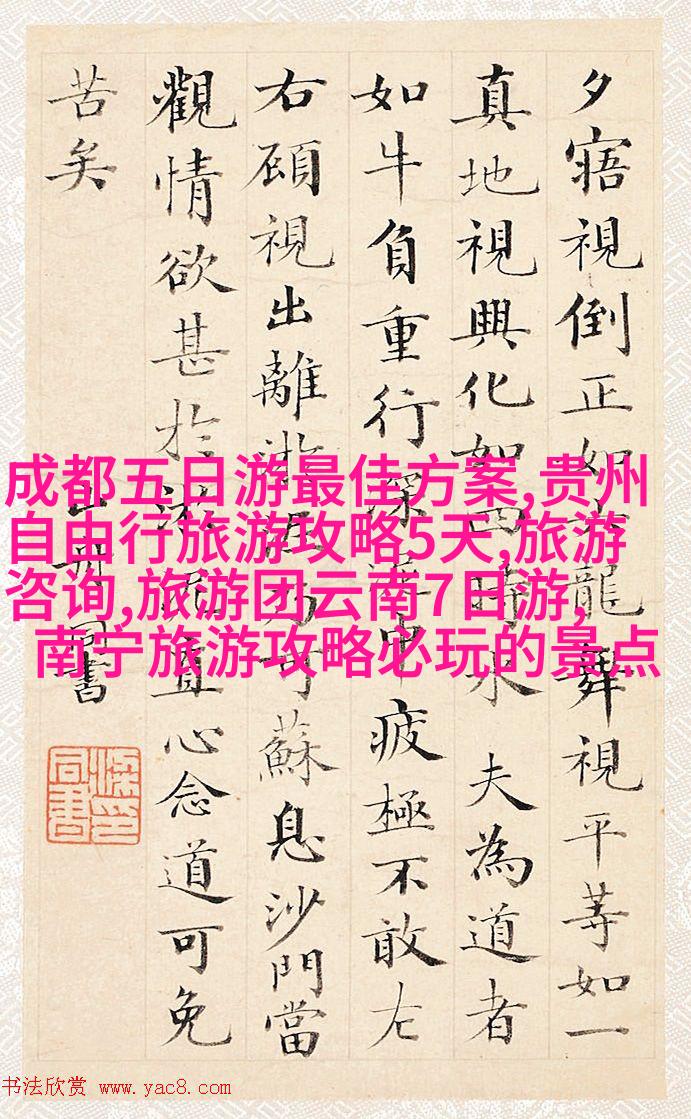 夕寤視倒正如六龍舞視平等如一
真地視興化如四時木 夫為道者
如牛負重行深泥中疲極不敢左
右顧視出離淤泥乃可蘇息沙門當
觀情欲甚於淤泥直心念道可免
苦矣
山舟同書
梁印同書
成都五日游最佳方案,贵州
自由行旅游攻略5天,旅游
咨询,旅游团云南7日游,
南宁旅游攻略必玩的景点
书法欣赏 www.yac8.com